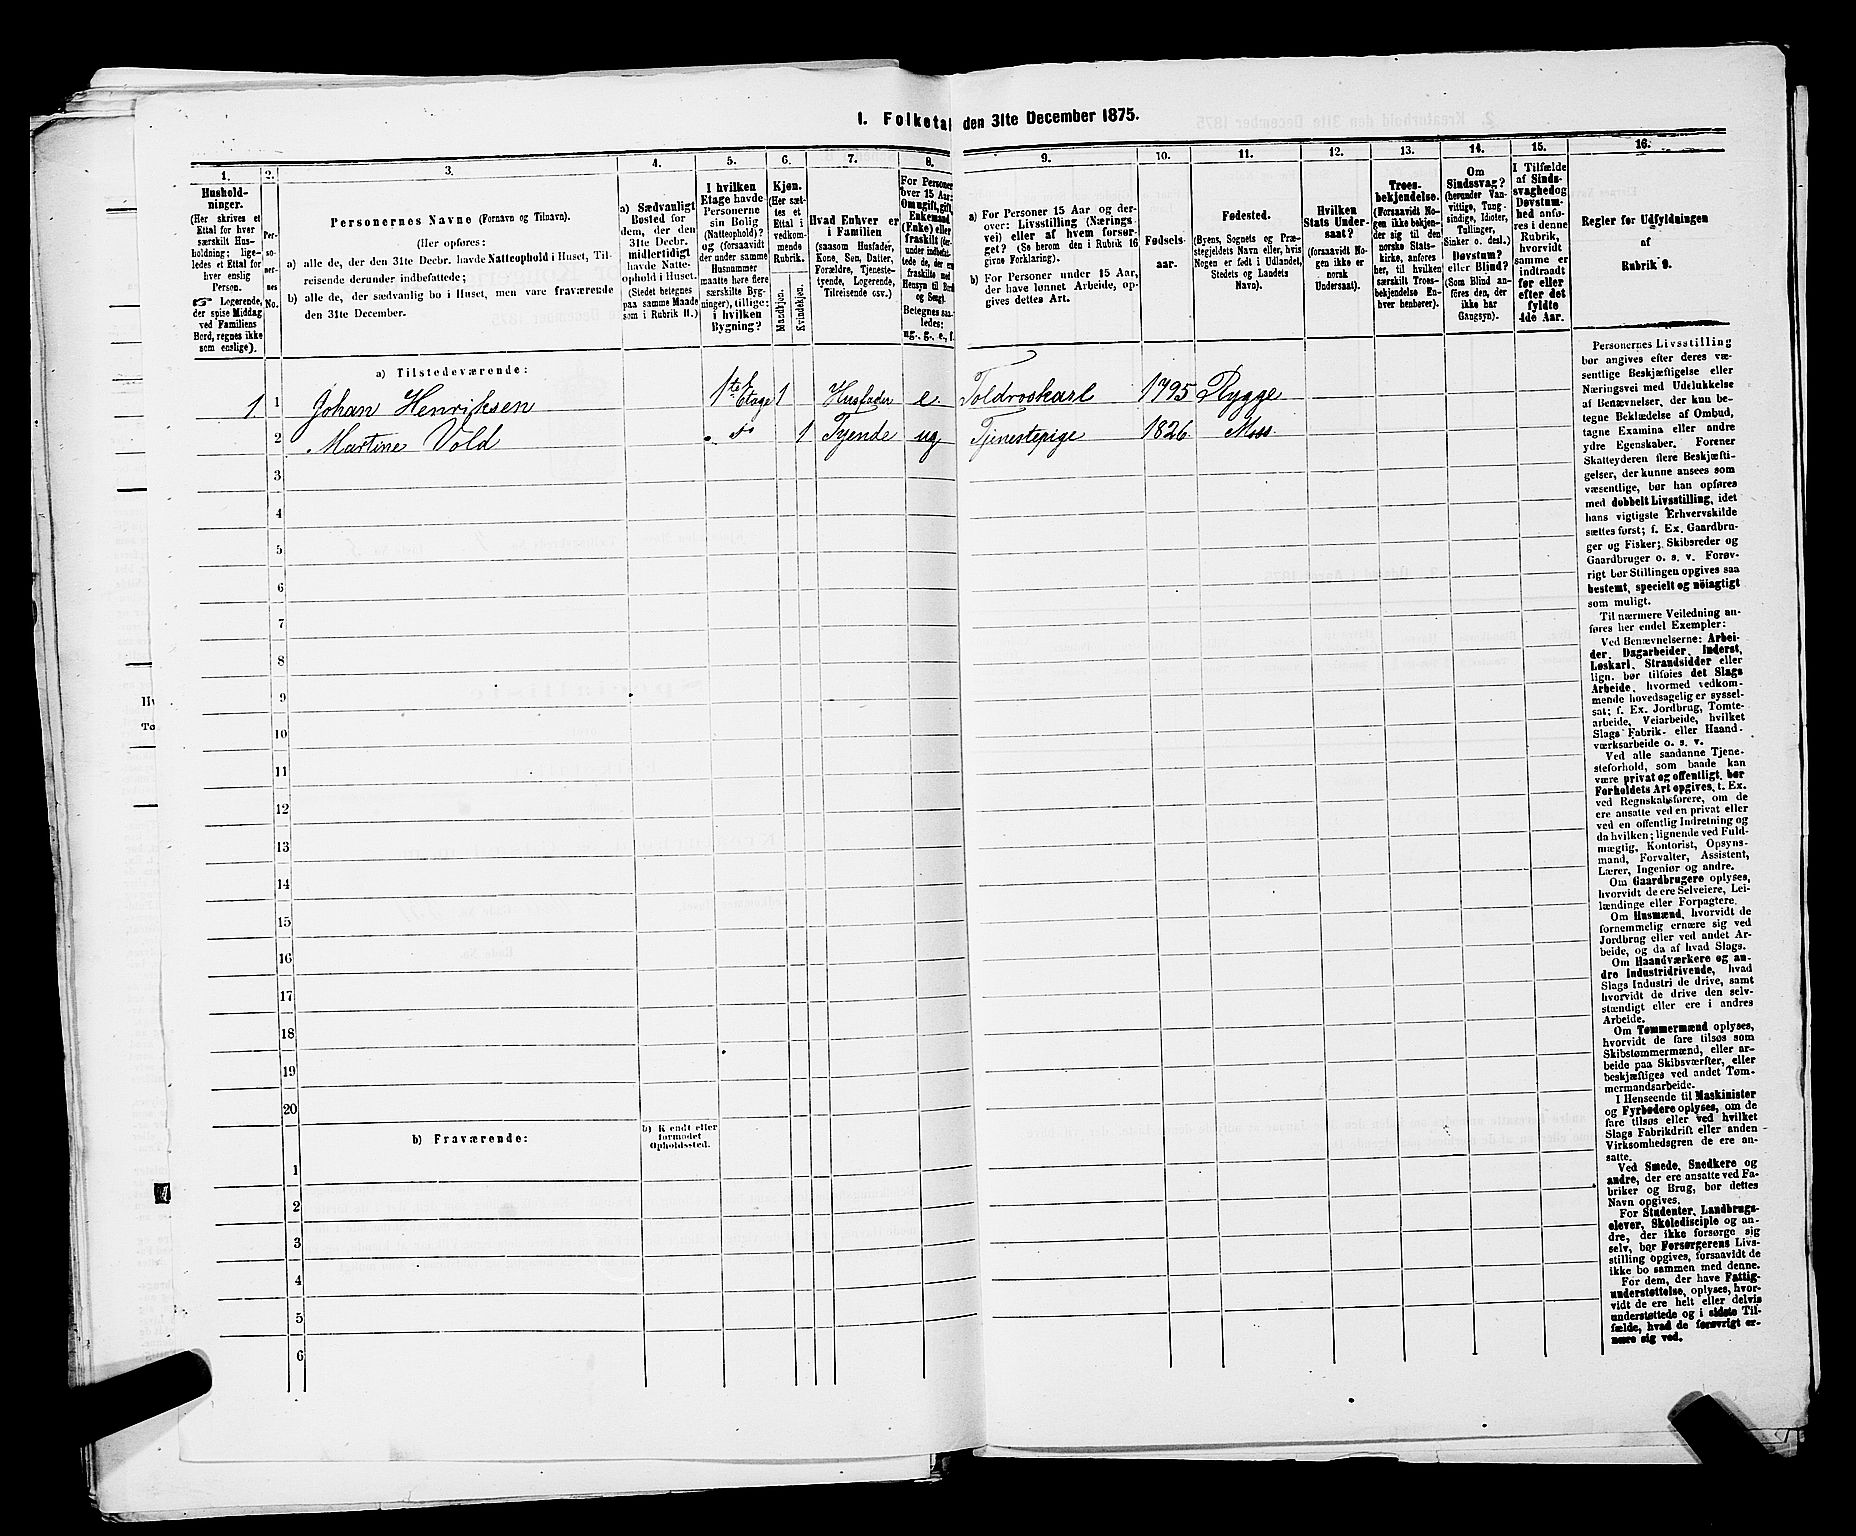 1. Folketal den 31te December 1875.
1.
2.
3.
4.
5.
6.
7.
8.
9.
10.
11.
12.
13.
14.
15.
16.
Hushold-
ninger.
(Her skrives et
Ettal for hver
særskilt Hus-
holdning; lige-
ledes et Ettal for
hver enslig
Person.
☞ Logerende,
der spise Middag
ved Familiens
Bord, regnes ikke
som enslige).
Per-
so-
ner-
nes
No.
Personernes Navne (Fornavn og Tilnavn).
(Her opføres:
a) alle de, der den 31te Decbr. havde Natteophold i Huset, Til-
reisende derunder indbefattede;
b) alle de, der sædvanlig bo i Huset, men vare fraværende
den 31te December.
a) Sædvanligt
Bosted for
dem, der den
31te Decbr.
midlertidigt
havde Natte-
ophold i Huset.
(Stedet betegnes
paa samme Maade
som i Rubrik 11.)
I hvilken
Etage havde
Personerne
sin Bolig
(Natteophold)?
og (forsaavidt
der under samme
Husnummer
maatte høre flere
særskilte Byg-
ninger), tillige:
i hvilken
Bygning?
Kjøn.
(Her sæt-
tes et
Ettal i
vedkom-
mende
Rubrik.
Mandkjøn.
Kvindekjøn.
Hvad Enhver er
i Familien
(saasom Husfader,
Kone, Søn, Datter,
Forældre, Tjeneste-
tyende, Logerende,
Tilreisende osv.).
For Personer
over 15 Aar:
Om ugift, gift,
Enkemand
(Enke) eller
fraskilt (der-
under indbefat-
tede de, der ere
fraskilte med
Hensyn til Bord
og Seng).
Betegnes saa-
ledes:
ug., g., e., f.
a) For Personer 15 Aar og der-
over: Livsstilling (Nærings-
vei) eller af hvem forsør-
get? (Se herom den i Rubrik 16
givne Forklaring).
b) For Personer under 15 Aar,
der have lønnet Arbeide, op-
gives dettes Art.
Fødsels-
aar.
Fødested.
(Byens, Sognets og Præ-
stegjeldets Navn eller, hvis
Nogen er født i Udlandet,
Stedets og Landets
Navn).
Hvilken
Stats Under-
saat?
(forsaavidt No-
gen ikke er
norsk
Undersaat).
Troes-
bekjendelse.
(Forsaavidt No-
gen ikke bekjen-
der sig til den
norske Stats-
kirke, anføres
her, til hvilken
særskilt Troes-
bekjendelse En-
hver henhører).
Om
Sindssvag?
(herunder Van-
vittige, Tung-
sindige, Idioter,
Tullinger,
Sinker o. desl.)
Døvstum?
eller Blind?
(Som Blind an-
føres den, der
ikke har
Gangsyn).
I Tilfælde
af Sinds-
svaghed og
Døvstum-
hed anfø-
res i denne
Rubrik,
hvorvidt
samme er
indtraadt
før eller
efter det
fyldte
4de Aar.
Regler for Udfyldningen
af
Rubrik 9.
a) Tilstedeværende:
1 1 Johan Henriksen 1ste Etage 1 Husfader e. Toldroskarl 1795 Rygge
2 Martine Vold do 1 Tyende ug Tjenestepige 1826 Moss.
3
4
5
6
7
8
9
10
11
12
13
14
15
16
17
18
19
20
b) Fraværende:
b) Kjendt eller
formodet
Opholdssted.
1
2
3
4
5
6
Personernes Livsstilling
bør angives efter deres væ-
sentlige Beskjæftigelse eller
Næringsvei med Udelukkelse
af Benævnelser, der kun be-
tegne Beklædelse af Ombud,
tagne Examina eller andre
ydre Egenskaber. Forener
Skatteyderen flere Beskjæfti-
gelser, der kunne ansees som
væsentlige, bør han opføres
med dobbelt Livsstilling, idet
hans vigtigste Erhvervskilde
sættes først; f. Ex. Gaardbru-
ger og Fisker; Skibsreder og
Gaardbruger o. s. v. Forøv-
rigt bør Stillingen opgives saa
bestemt, specielt og nöiagtigt
som muligt.
Til nærmere Veiledning an-
føres her endel Exempler:
Ved Benævnelserne: Arbei-
der, Dagarbeider, Inderst,
Løskarl, Strandsidder eller
lign. bør tilføies det Slags
Arbeide, hvormed vedkom-
mende hovedsagelig er syssel-
sat; f. Ex. Jordbrug, Tomte-
arbeide, Veiarbeide, hvilket
Slags Fabrik- eller Haand-
værksarbeide o. s. v.
Ved alle saadanne Tjene-
steforhold, som baade kan
være privat og offentligt, bør
Forholdets Art opgives, t. Ex.
ved Regnskabsførere, om de
ere ansatte ved en privat eller
ved en offentlig Indretning og
da hvilken; lignende ved Fuld-
mægtig, Kontorist, Opsyns-
mand, Forvalter, Assistent,
Lærer, Ingeniør og andre.
Om Gaardbrugere oplyses,
hvorvidt de ere Selveiere, Lei-
lændinge eller Forpagtere.
Om Husmænd, hvorvidt de
fornemmelig ernære sig ved
Jordbrug eller ved andet Ar-
beide, og da af hvad Slags.
Om Haandværkere og an-
dre Industridrivende, hvad
Slags Industri de drive, samt
hvorvidt de drive den selv-
stændigt eller ere i andres
Arbeide.
Om Tømmermænd oplyses,
hvorvidt de fare tilsøs som
Skibstømmermænd, eller ar-
beide paa Skibsværfter, eller
beskjæftiges ved andet Tøm-
mermandsarbeide.
I Henseende til Maskinister
og Fyrbødere oplyses, om de
fare tilsøs eller ved hvilket
Slags Fabrikdrift eller anden
Virksomhedsgren de ere an-
satte.
Ved Smede, Snedkere og
andre, der ere ansatte ved Fa-
briker og Brug, bør dettes
Navn opgives.
For Studenter, Landbrugs-
elever, Skoledisciple og an-
dre, der ikke forsørge sig
selv, bør Forsørgerens Livs-
stilling opgives, forsaavidt de
ikke bo sammen med denne.
For dem, der have Fattig-
understøttelse, oplyses, hvor-
vidt de ere helt eller delvis
understøttede og i sidste Til-
fælde, hvad de forøvrigt er-
nære sig ved.